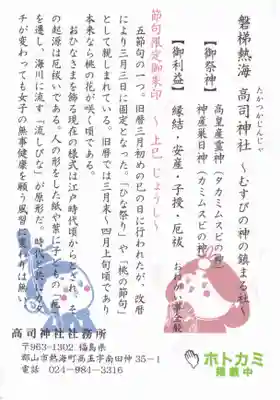 磐梯熱海 高司神社 ～むすびの神の鎮まる社～
たかつかじんじゃ
【御祭神】 高皇産霊神（タカミムスビの神）
神産巣日神（カミムスビの神）
【御利益】 縁結・安産・子授・厄祓
節句限定御朱印 上巳 じょうし
五節句の一つ。旧暦三月初めの巳の日に行われたが、改暦
により三月三日に固定となった。「ひな祭り」や「桃の節句」
として親しまれている。旧暦では三月末～四月上旬頃であり
本来なら桃の花が咲く頃である。
おひなさまを飾る現在の様式は江戸時代頃から
の起源は厄祓いである。人の形をした紙や葉に子
を遷し、海川に流す「流しびな」が原形だ。時代
チが変わっても女子の無事健康を願う風習に変わりは無い
高司神社社務所
〒963-1302 福島県
郡山市熱海町高玉字南田仲35-1
電話 024-984-3316
ホトカミ
掲載中